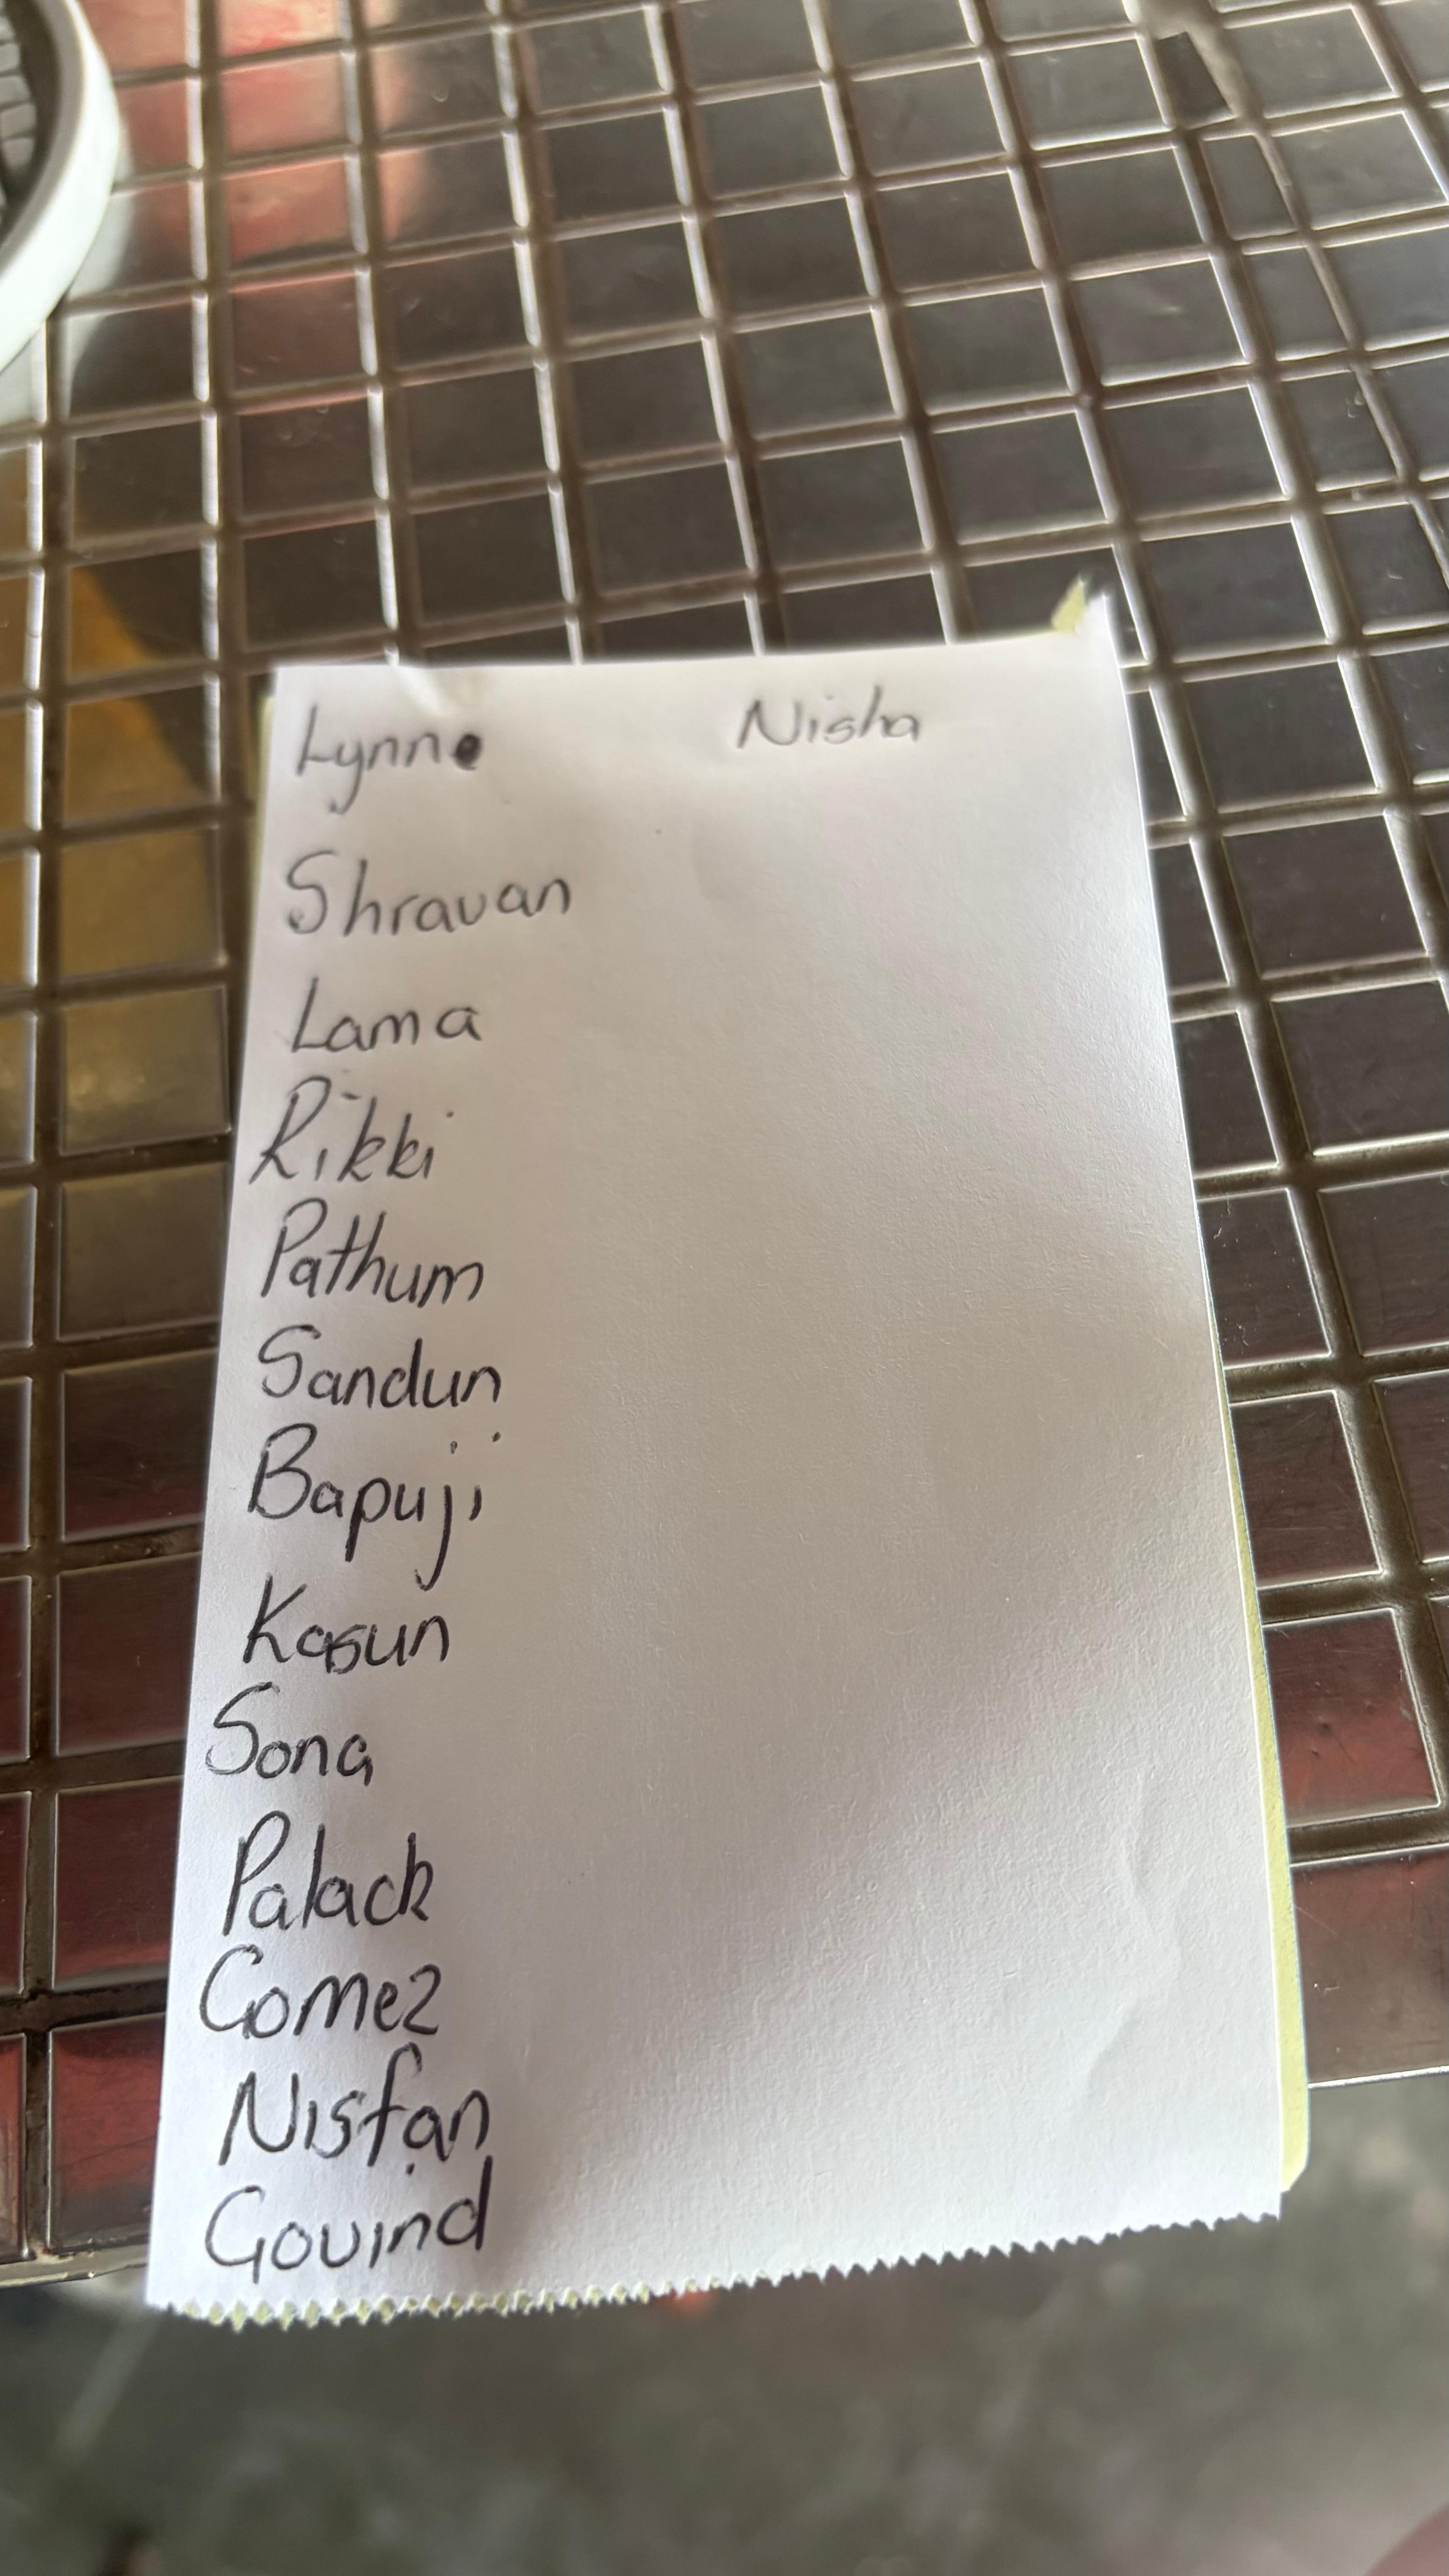 Lynne Nisha
Shravan
Lama
Rikki
Pathum
Sandun
Bapuji
Kasun
Sona
Palack
Gomez
Nisfan
Govind